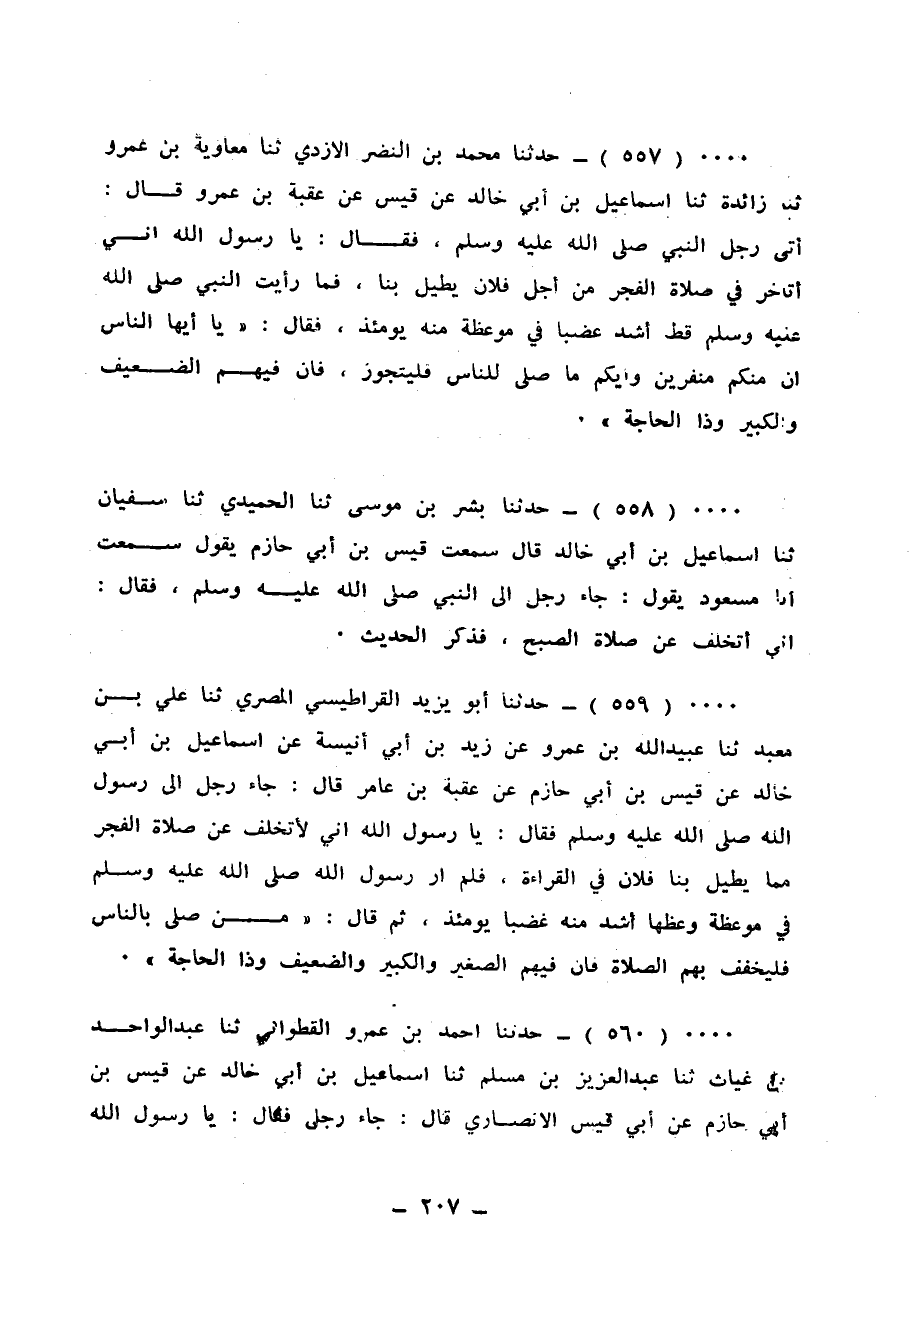 ٠٠٠٠ ( ٥٥٧ ) ـ حدثنا محمد بن النضر الازدي ثنا معاوية بن عمرو
ثنا زائدة ثنا اسماعيل بن أبي خالد عن قيس عن عقبة بن عمرو قال :
أتى رجل النبي صلى الله عليه وسلم ، فقال : يا رسول الله اني
أتاخر في صلاة الفجر من أجل فلان يطيل بنا ، فما رأيت النبي صلى الله
عليه وسلم قط أشد غضبا في موعظة منه يومئذ ، فقال : « يا أيها الناس
ان منكم منفرين وأيكم ما صلى للناس فليتجوز ، فان فيهم الضعيف
والكبير وذا الحاجة » ٠
٠٠٠٠ ( ٥٥٨ ) ـ حدثنا بشر بن موسى ثنا الحميدي ثنا سفيان
ثنا اسماعيل بن أبي خالد قال سمعت قيس بن أبي حازم يقول سمعت
أبا مسعود يقول : جاء رجل الى النبي صلى الله عليه وسلم ، فقال :
اني أتخلف عن صلاة الصبح ، فذكر الحديث ٠
٠٠٠٠ ( ٥٥٩ ) ـ حدثنا أبو يزيد القراطيسي المصري ثنا علي بن
معبد ثنا عبيدالله بن عمرو عن زيد بن أبي أنيسة عن اسماعيل بن أبي
خالد عن قيس بن أبي حازم عن عقبة بن عامر قال : جاء رجل الى رسول
الله صلى الله عليه وسلم فقال : يا رسول الله اني لأتخلف عن صلاة الفجر
مما يطيل بنا فلان في القراءة ، فلم ار رسول الله صلى الله عليه وسلم
في موعظة وعظها أشد منه غضبا يومئذ ، ثم قال : « من صلى بالناس
فليخفف بهم الصلاة فان فيهم الصغير والكبير والضعيف وذا الحاجة » ٠
٠٠٠٠ ( ٥٦٠ ) ـ حدثنا احمد بن عمرو القطواني ثنا عبدالواحد
بن غياث ثنا عبدالعزيز بن مسلم ثنا اسماعيل بن أبي خالد عن قيس بن
أبي حازم عن أبي قيس الانصاري قال : جاء رجل فقال : يا رسول الله
ـ ٢٠٧ ـ